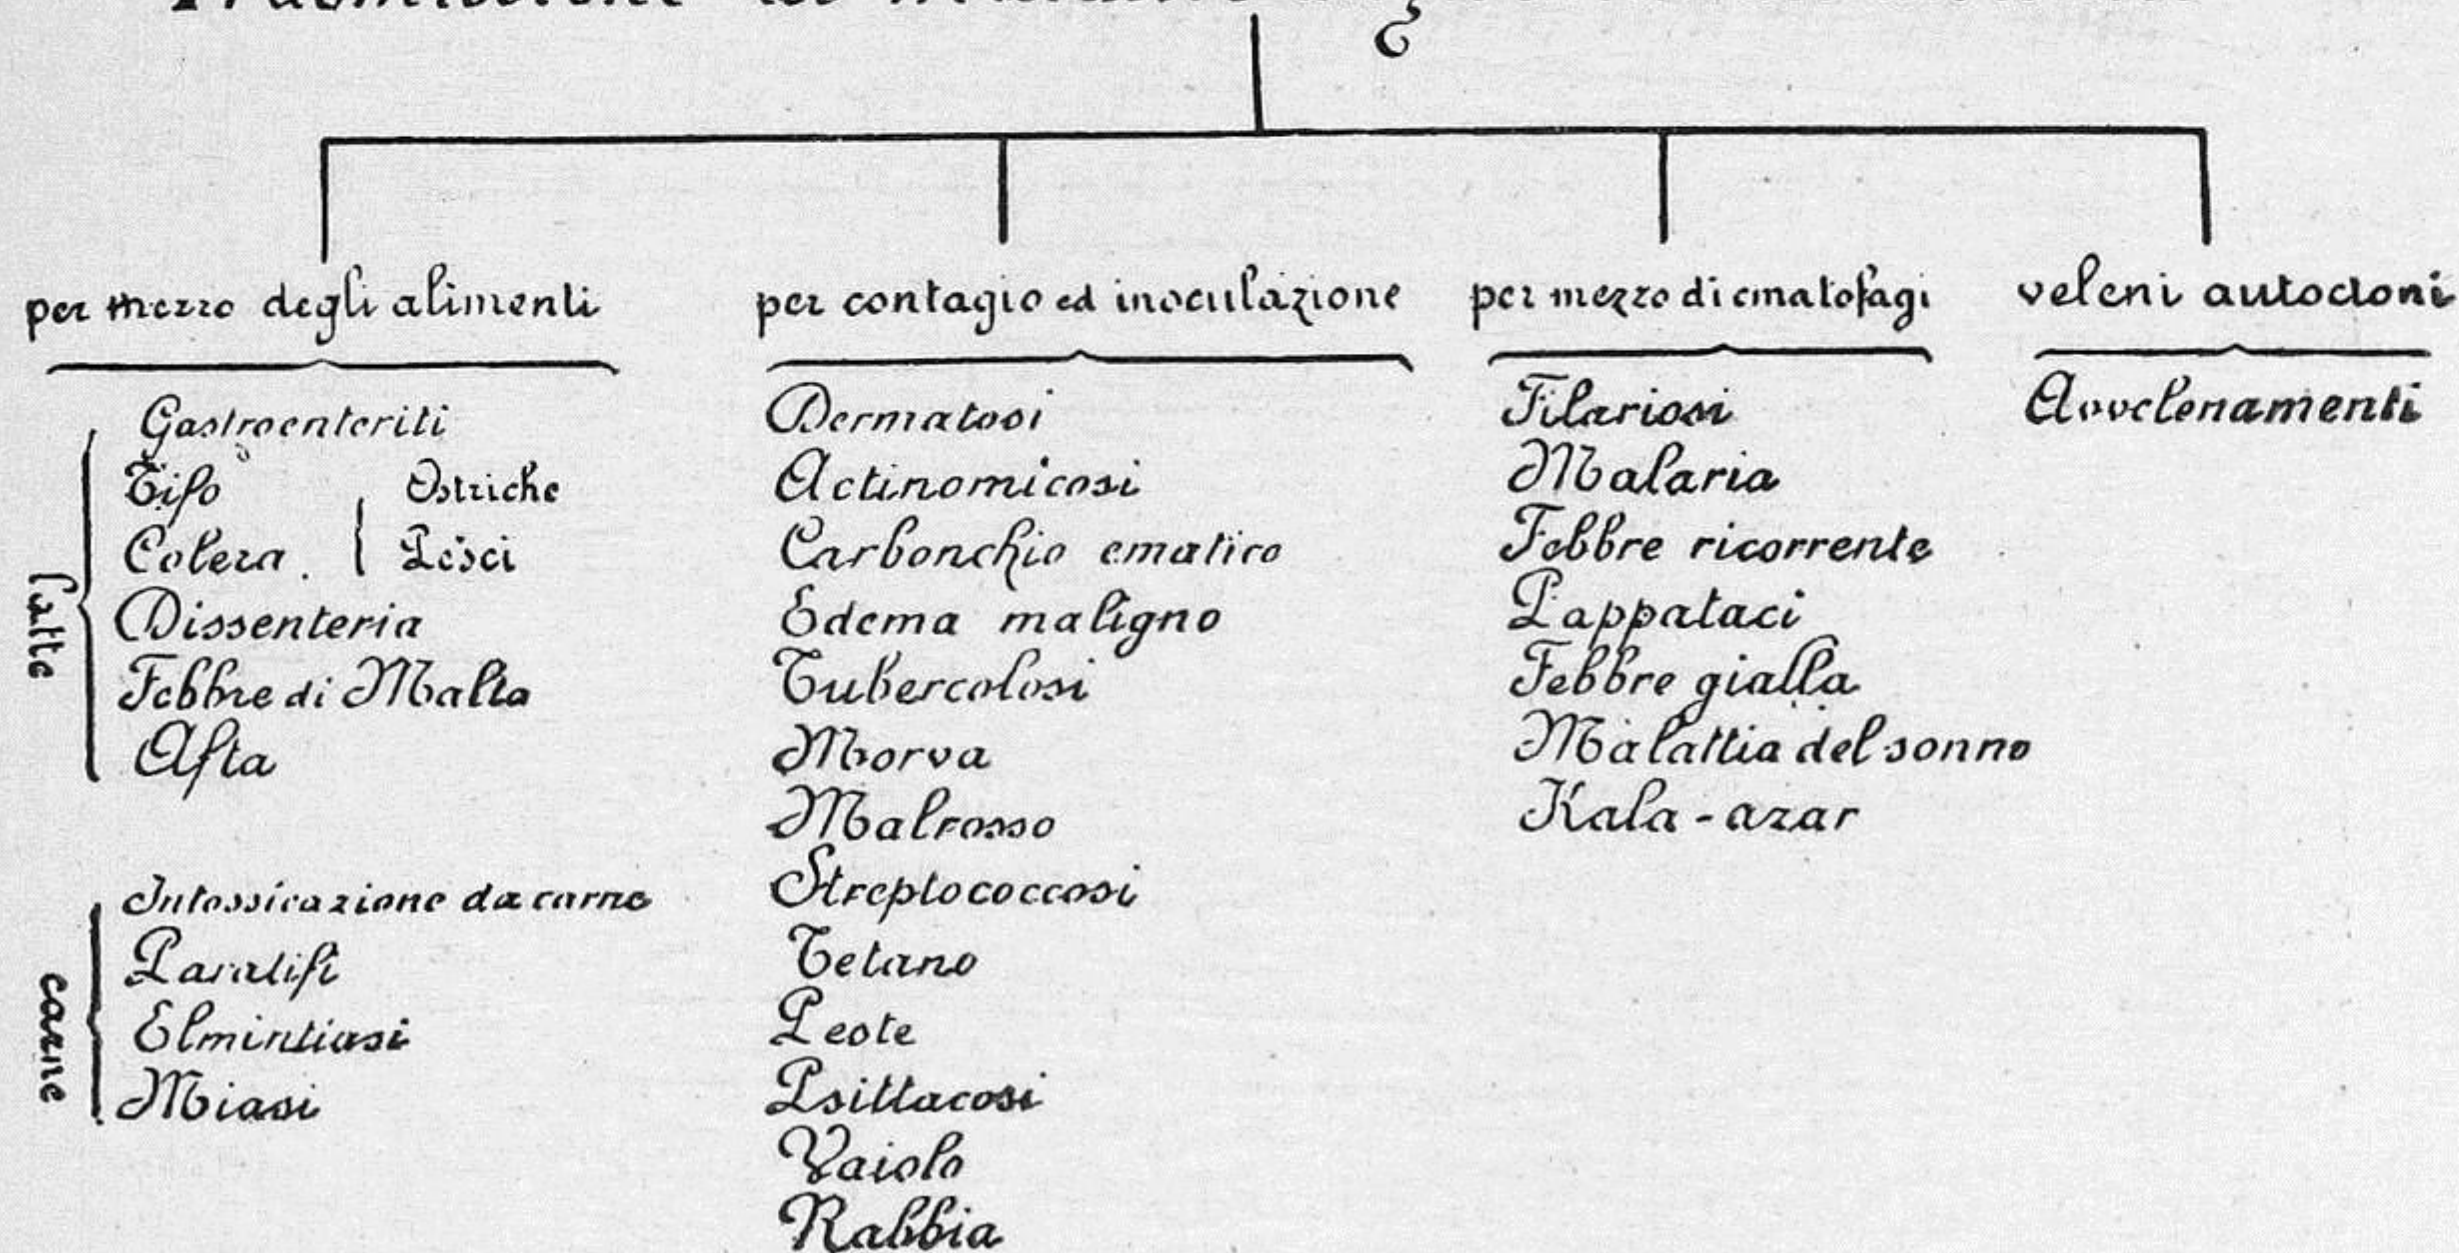 per mezzo degli alimenti
latte
Gastroenteriti
Tifo
Colera
Ostriche
Pesci
Dissenteria
Febbre di Malta
Afta
carne
Intossicazione da carne
Paratifi
Elmintiasi
Miasi
per contagio ed inoculazione
Dermatosi
Actinomicosi
Carbonchio ematico
Edema maligno
Tubercolosi
Morva
Malrosso
Streptococcosi
Tetano
Peste
Psittacosi
Vaiolo
Rabbia
per mezzo di ematofagi
Filariosi
Malaria
Febbre ricorrente
Pappataci
Febbre gialla
Malattia del sonno
Kala-azar
veleni autoctoni
Avvelenamenti